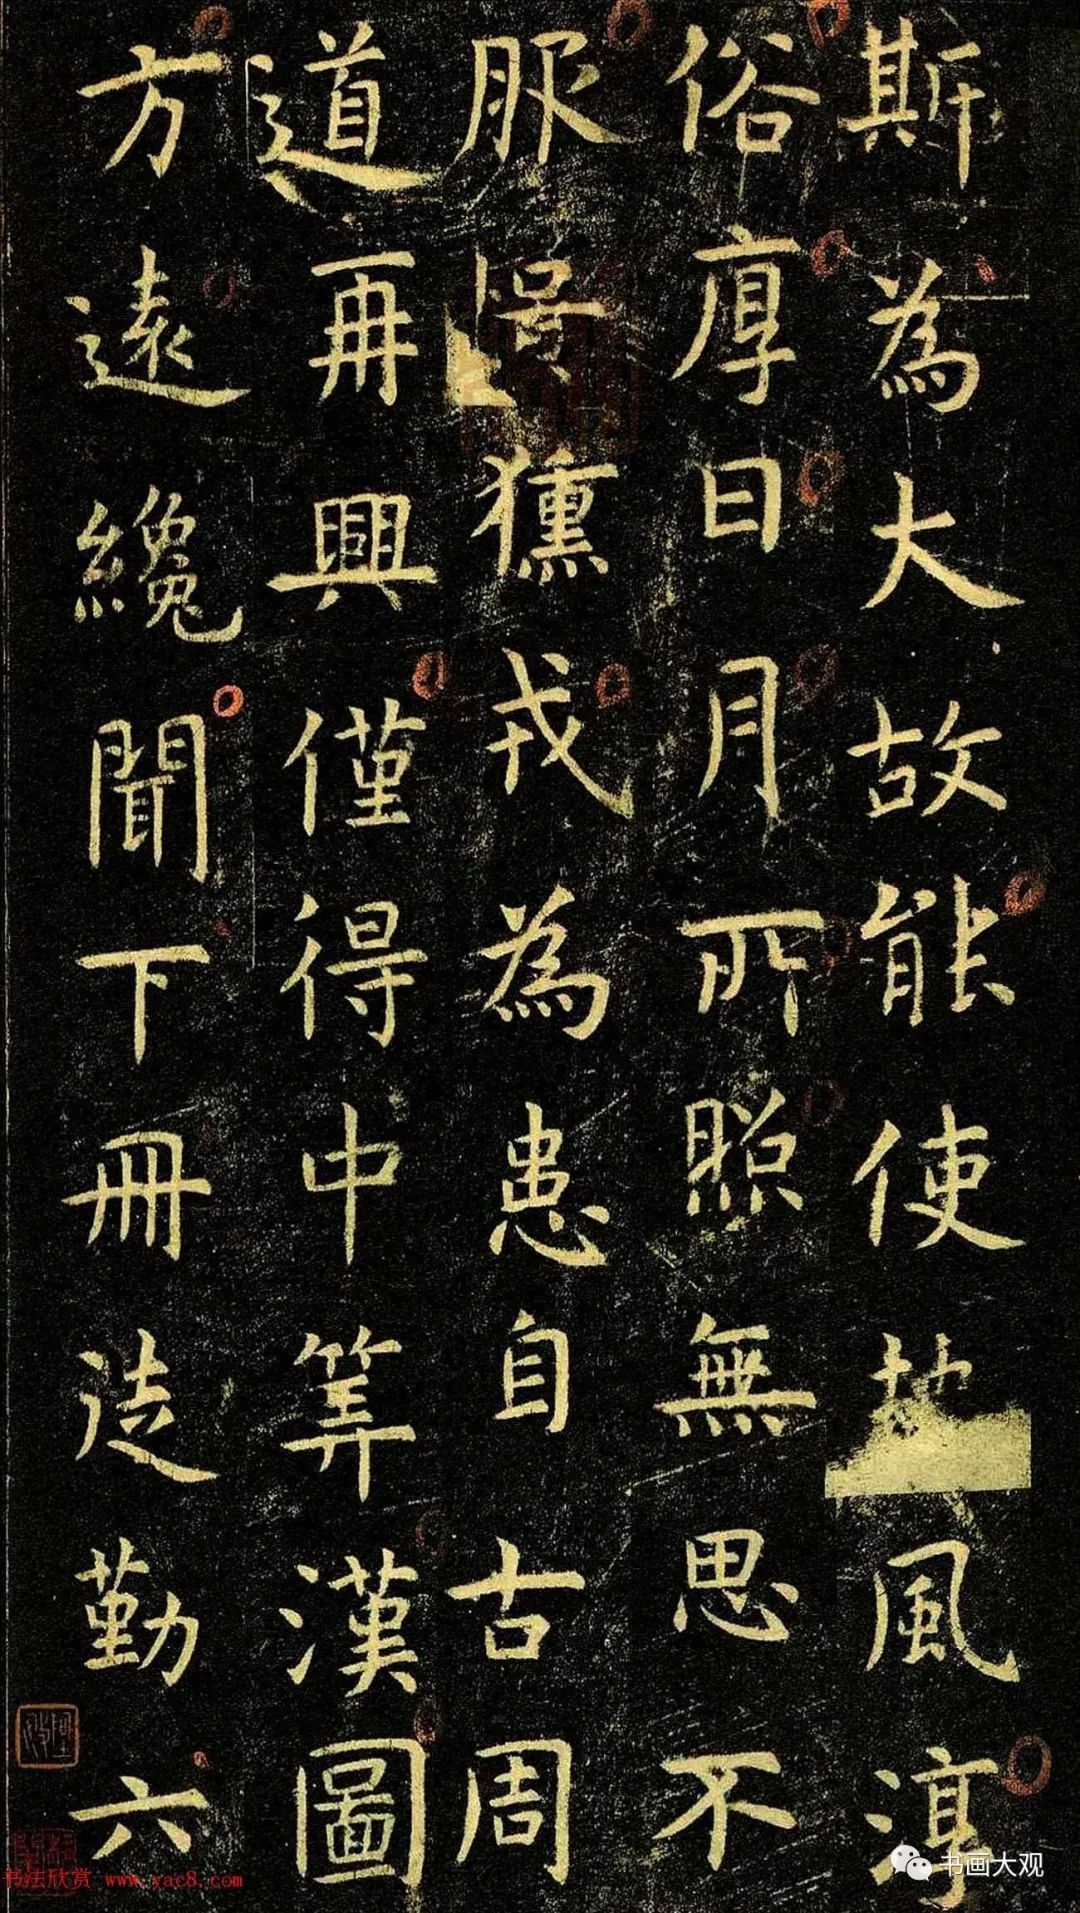 斯為大故能使地風淳
俗厚日月所照無思不
服号獯戎為患自古周
道再興僅得中筭漢圖
方遠纔聞下冊徒勤六
书画大观
书法欣赏 www.yac8.com